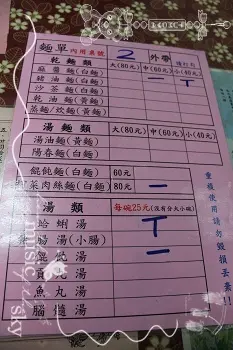 140104
麵單 內用桌號 2 外帶
乾麵類 大(80元) 中(60元) 小(40元)
麻醬麵(白麵)
豬油麵(白麵)
沙茶麵(白麵)
乾油麵(黃麵)
蒸麵/炊麵(黃麵)
湯麵類 大(80元) 中(60元) 小(40元)
湯油麵(黃麵)
陽春麵(白麵)
餛飩麵(白麵) 60元
菜肉絲麵(白麵) 80元 一
湯類 每碗25元(沒有分大小碗)
蛤蜊湯
腸湯(小腸)
餛飩湯 一
貢丸湯
魚丸湯
腦髓湯
重複使用請勿毀損丟棄!!
music sky